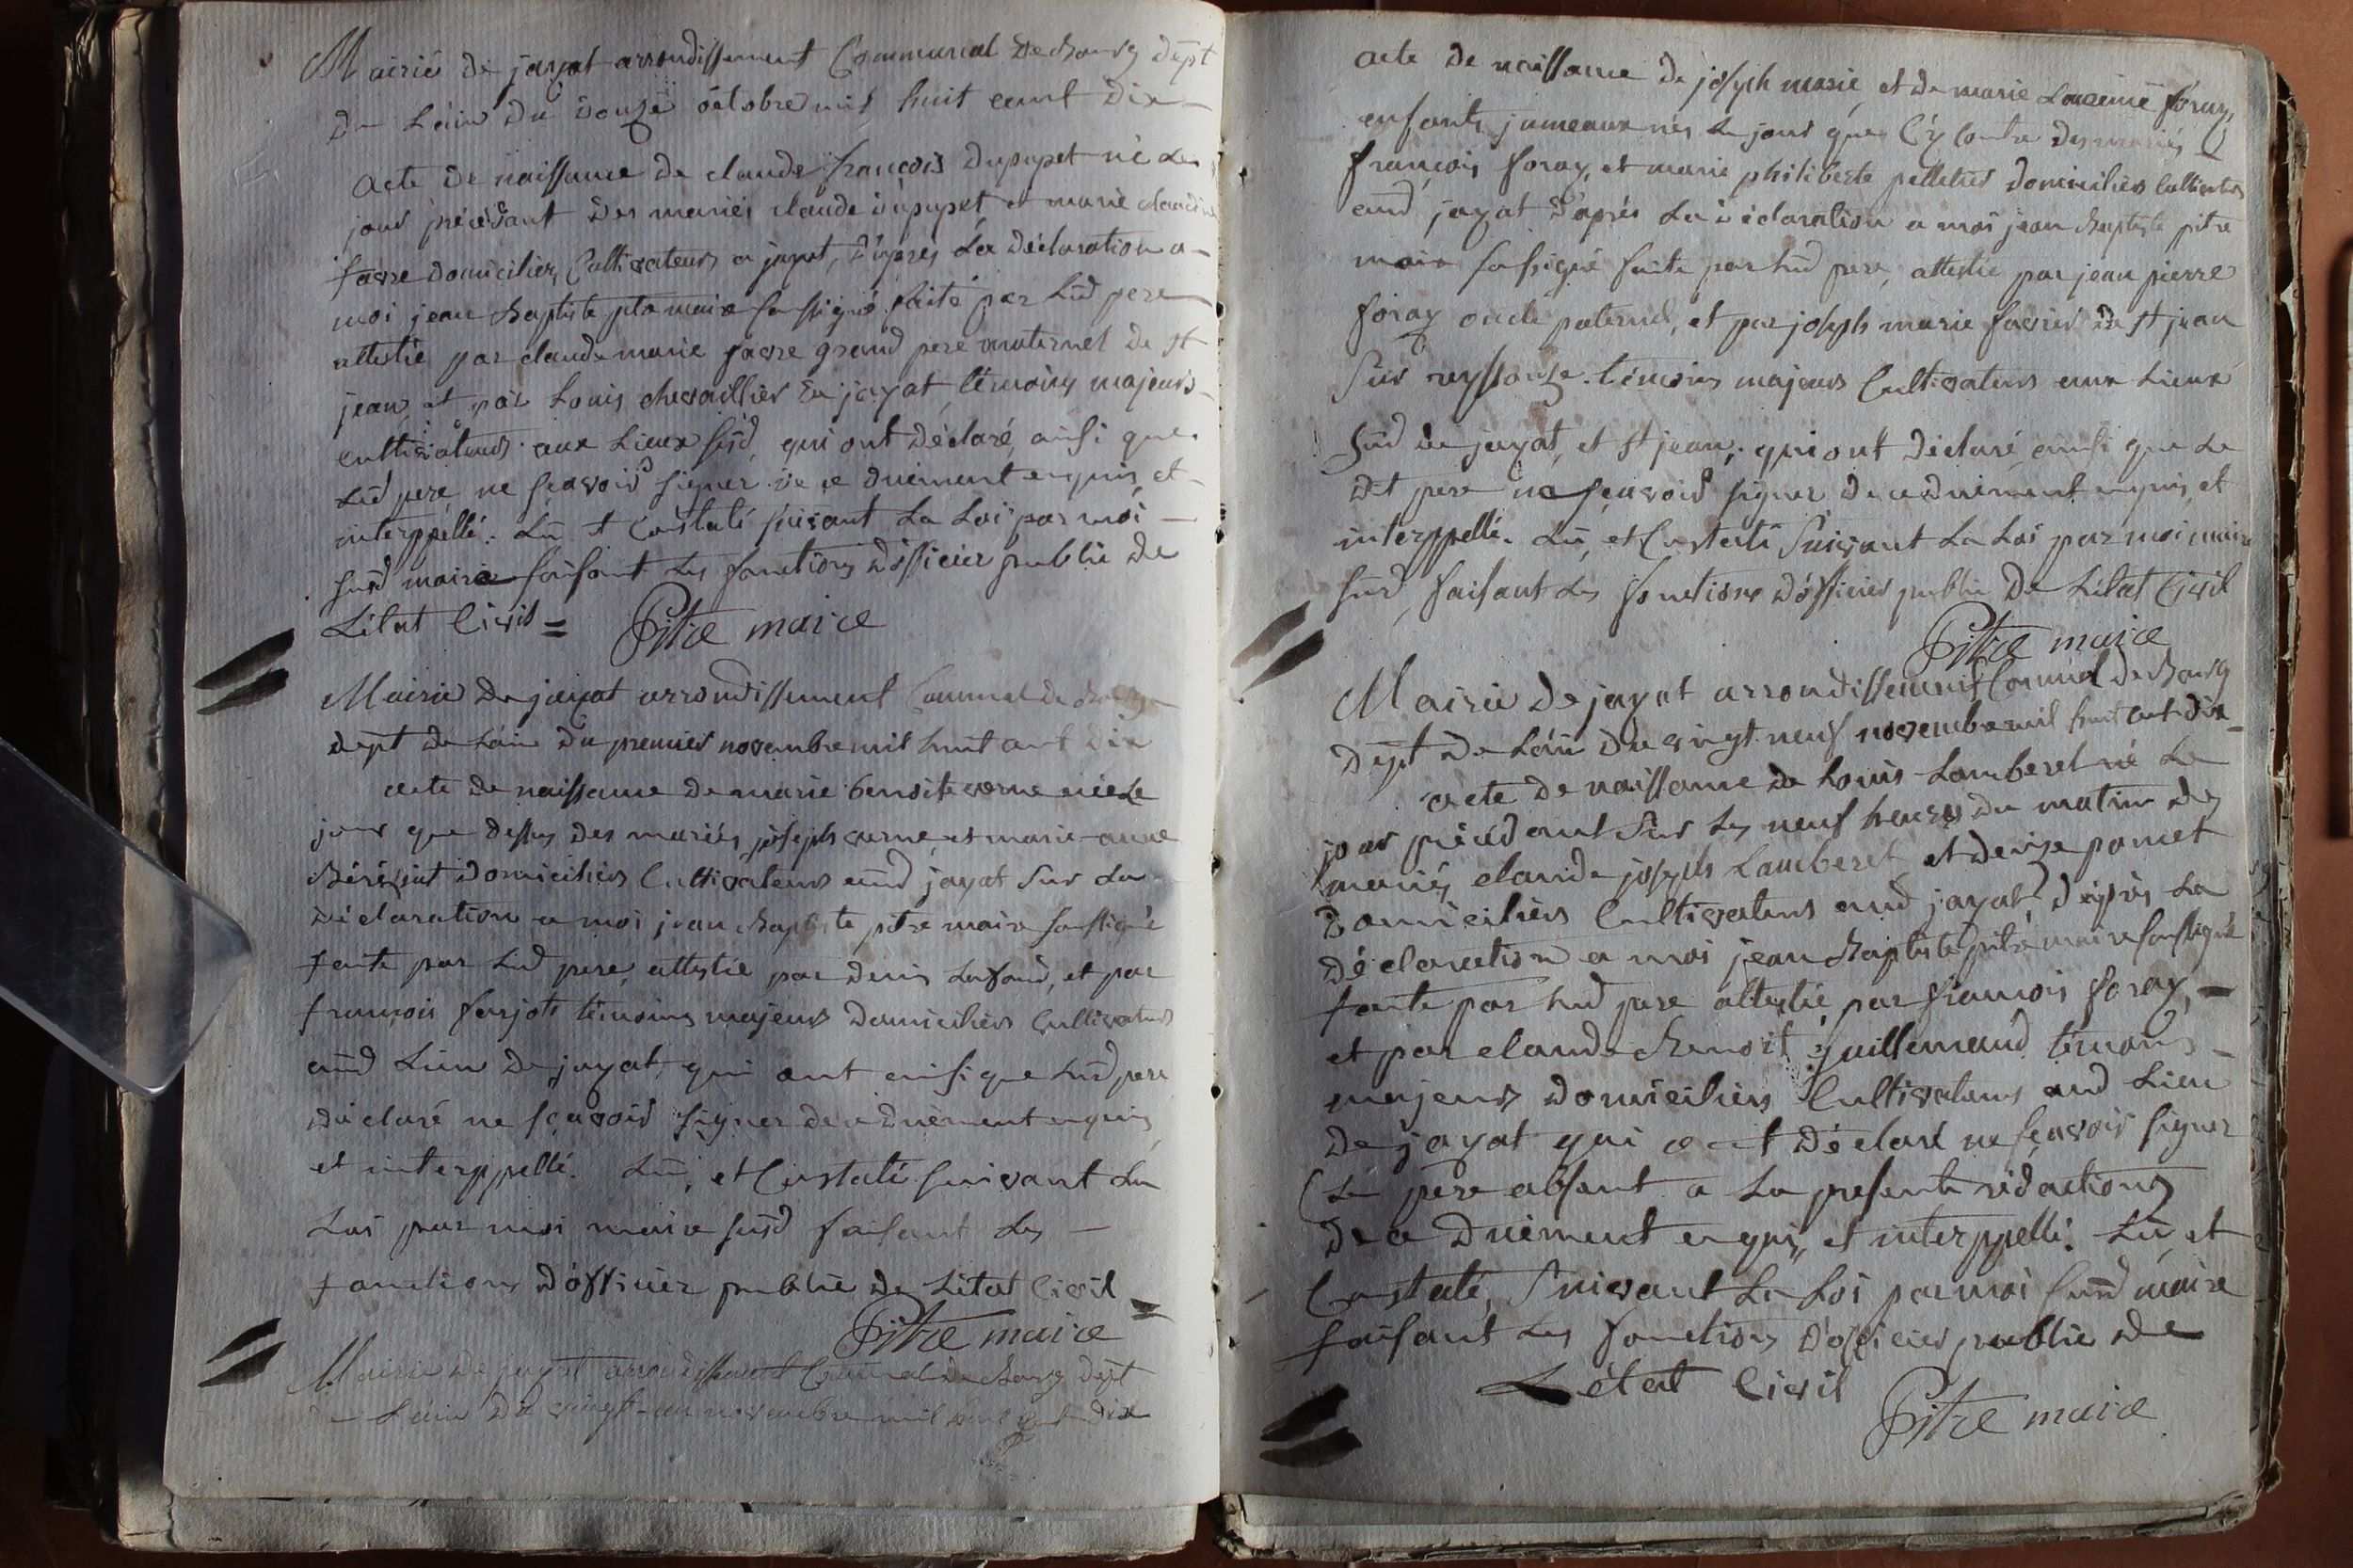 Mairie de jayat arrondissement Communal de Bourg dept
de Lain du douze octobre mil huit cent dix
acte de naissance de claude françois dupupet né le
jour précédant des mariés claude dupupet et marie claudine
favre domiciliés Cultivateurs a jayat, d'après La déclaration a
moi jean Baptiste pitre maire soussigné faite par Lud pere
attestée par claude marie favre grand pere maternel de st
jean et par Louis chevaillier de jayat témoins majeurs
cultivateurs aux Lieux susd, qui ont déclaré, ainsi que
Lud pere ne sçavoir signer de ce duement enquis, et
interppellé. Lu et Constaté suivant La Loi par moi
susd maire faisant Les fonctions d'officier public de
L'état Civil =
Pitre maire
Mairie de jayat arrondissement Communal de Bourg
dept de Lain du premier novembre mil huit cent dix
acte de naissance de marie benoite verne née Le
jour que dessus des mariés joseph verne, et marie anne
domiciliés Cultivateurs aud jayat sur La
déclaration a moi jean Baptiste pitre maire soussigné
faite par Lud pere, attestée par denis Lafond, et par
françois farjot témoins majeurs domiciliés Cultivateurs
aud Lieu de jayat, qui ont ainsi que Lud pere
déclaré ne sçavoir signer de ce duement enquis
et interppellé. Lu, et Constaté suivant La
Loi par moi maire susd faisant Les
fonctions d'officier public de L'état Civil =
Pitre maire
Mairie de jayat arrondissement Communal de Bourg dept
de Lain du vingt-un novembre mil huit cent dix
acte de naissance de joseph marie, et de marie foray,
enfants jumeaux nés Le jour que Cy Contre des mariés
françois foray, et marie philiberte pelletier domiciliés Cultivateurs
aud jayat d'après La déclaration a moi jean Baptiste pitre
maire soussigné faite par Lud pere, attestée par jean pierre
foray oncle paternel, et par joseph marie favrier de st jean
sur reyssouze témoins majeurs Cultivateurs aux Lieux
susd de jayat, et st jean, qui ont déclaré ainsi que Le
dit pere ne sçavoir signer de ce duement enquis, et
interppellé. Lu, et Constaté suivant La Loi par moi maire
susd, faisant Les fonctions d'officier public de L'état Civil
Pitre maire
Mairie de jayat arrondissement Communal de Bourg
dept de Lain du vingt neuf novembre mil huit cent dix
acte de naissance de Louis Lamberet né Le
jour précédant sur Les neuf heures du matin des
mariés claude joseph Lamberet et denize poncet
domiciliés Cultivateurs aud jayat, d'après La
déclaration a moi jean Baptiste pitre maire soussigné
faite par Lud pere attestée par françois foray,
et par claude Benoit guillemaud témoins
majeurs domiciliés Cultivateurs aud Lieu
de jayat qui ont déclaré ne sçavoir signer
(Le père absent a La presente rédaction)
de ce duement enquis, et interppellé. Lu, et
Constaté, suivant La Loi par moi susd maire
faisant Les fonctions d'officier public de
L'état Civil
Pitre maire